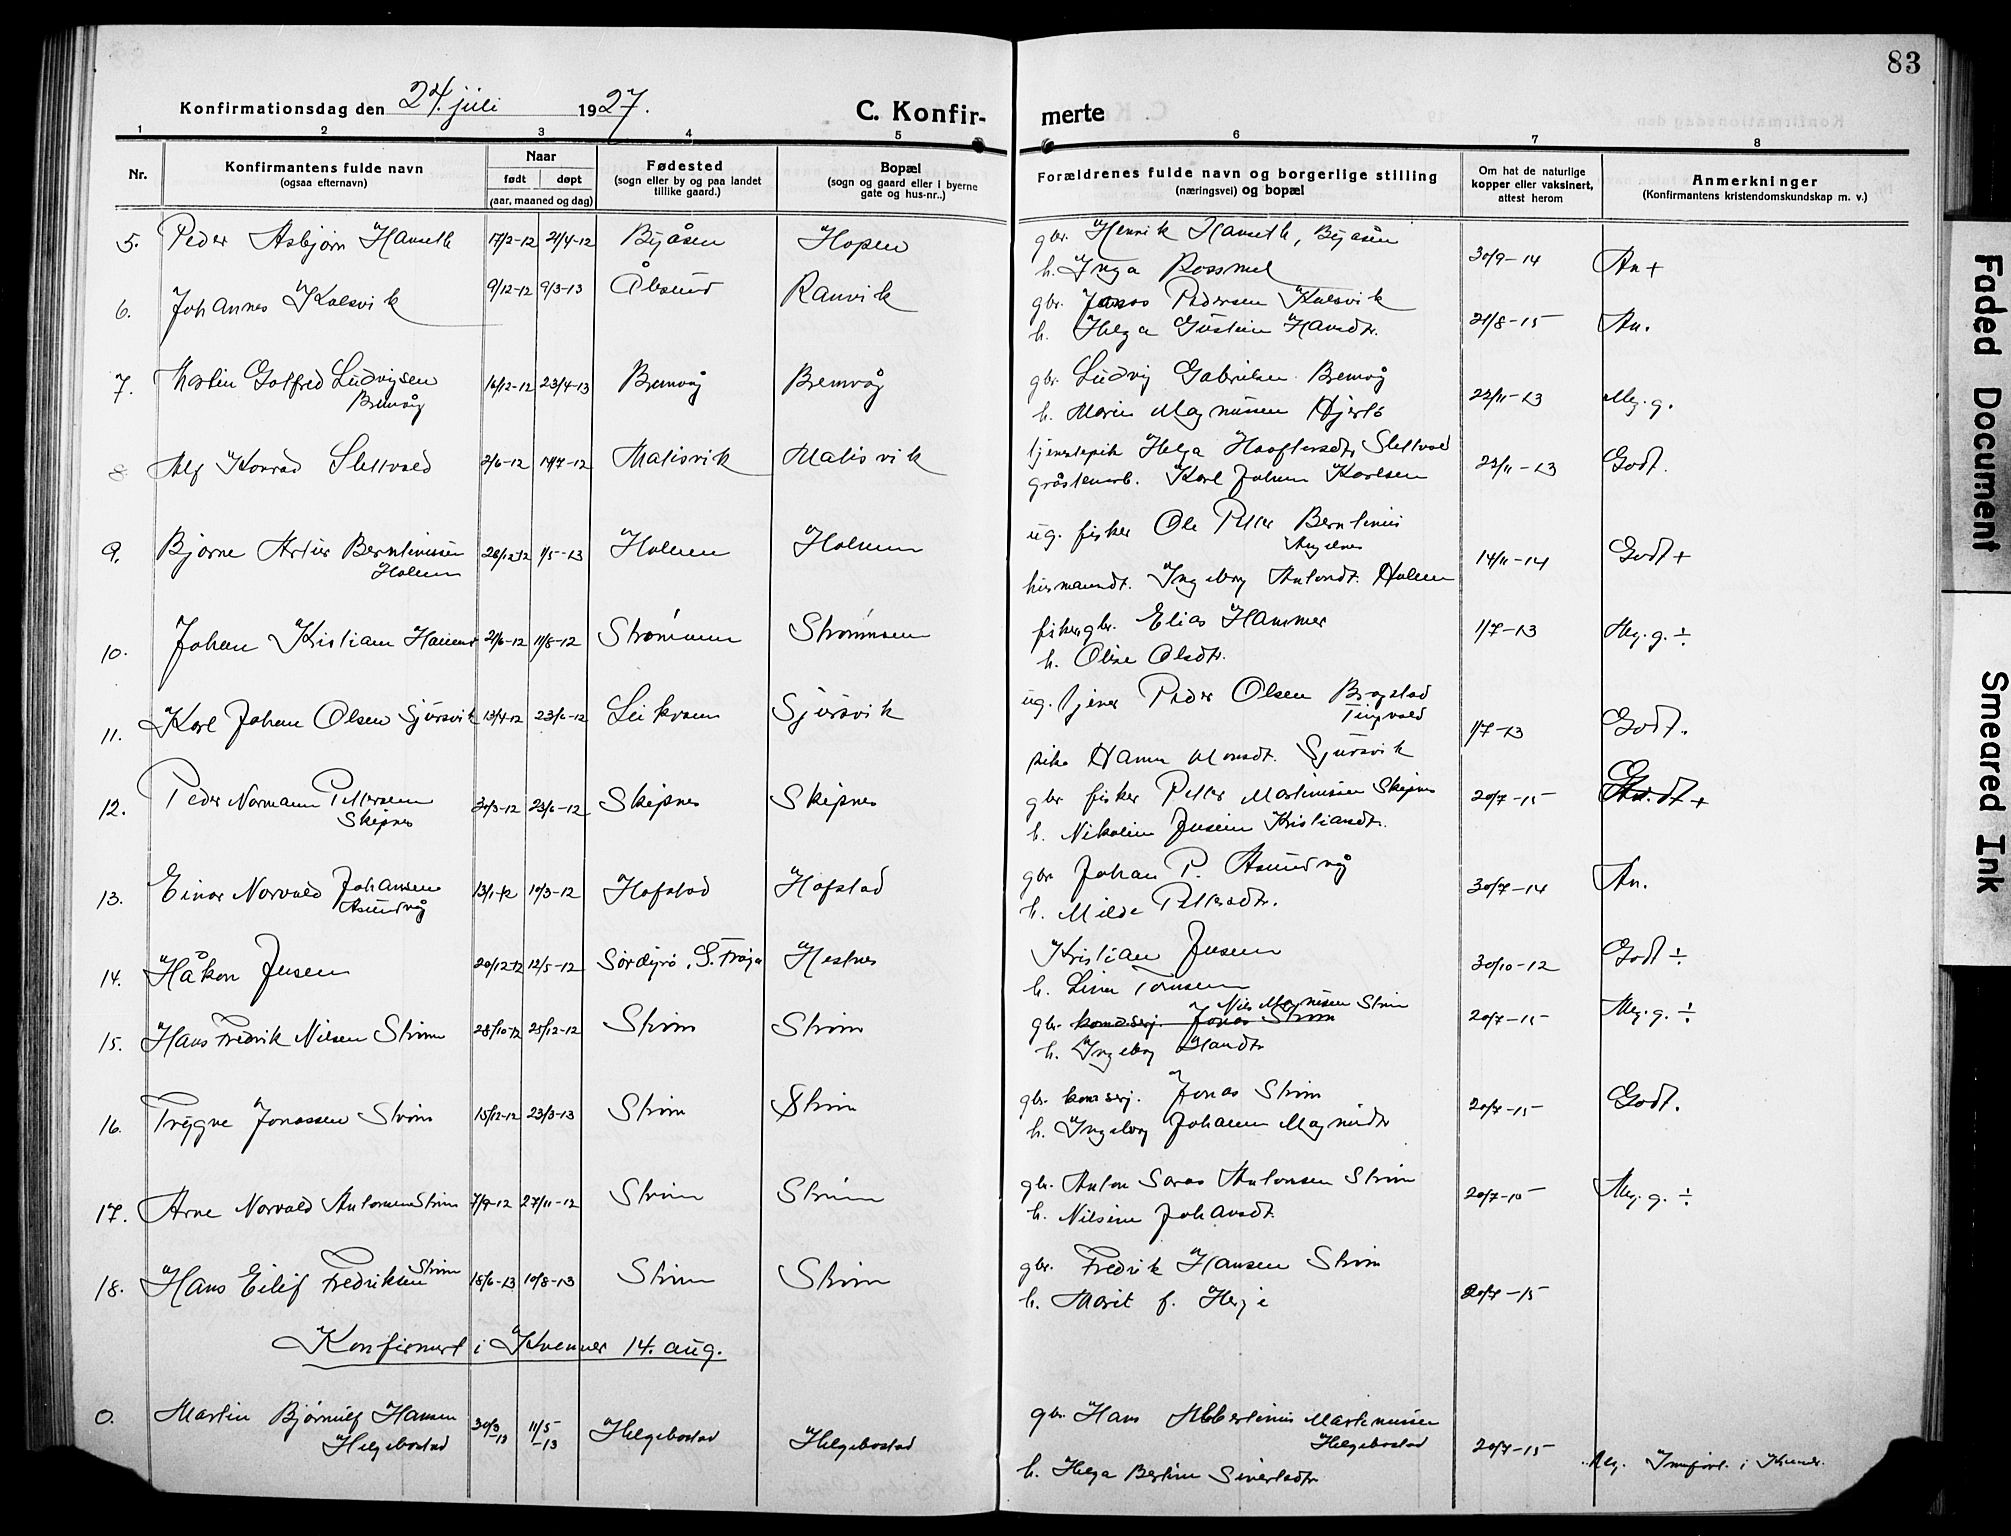 83
Konfirmationsdag den 24. juli 1927.
C. Konfir-merte
1 2 3 4 5 6 7 8
Nr.
Konfirmantens fulde navn
(ogsaa efternavn)
Naar
født døpt
(aar, maaned og dag)
Fødested
(sogn eller by og paa landet
tillike gaard.)
Bopæl
(sogn og gaard eller i byerne
gate og hus-nr..)
Forældrenes fulde navn og borgerlige stilling
(næringsvei) og bopæl
Om hat de naturlige
kopper eller vaksinert,
attest herom
Anmerkninger
(Konfirmantens kristendomskundskap m. v.)
5. Peder Asbjørn Hanseth 17/2-12 21/4-12 Byåsen Hopen gbr. Henrik Hanseth, Byåsen
h. Inga Rossmel 30/9-14 An +
6. Johannes Kalsvik 9/12-12 9/3-13 Ålesund Ranvik gbr. Pedersen Kalsvik
h. Helga Gustin Hansdtr. 21/8-15 An.
7. Martin Gotfred Ludvigsen
Bremvåg 16/12-12 23/4-13 Bremvåg Bremvåg gbr. Ludvig Gabrielsen Bremvåg
h. Marie Magnussen Hjertø 22/11-13 Meg. g.
8 Alf Konrad Slettvold 2/6-12 14/7-12 Malisvik Malisvik tjenestepik Helga Slettvold
gråstenarb. Karl Johan Karlsen 22/11-13 Godt.
9. Bjarne Artur Berntinussen
Holmen 28/12-12 1/5-13 Holmen Holmen ug. fisker Ole Petter Berntinus
husmanndt. Ingeborg Antondt. Holmen 14/11-14 Godt +
10. Johan Kristian Hammer 2/6-12 11/8-12 Strømmen Strømmen fisker gbr. Elias Hammer
h. Oline Olsdtr. 1/7-13 Meg. g. ÷
11. Karl Johan Olsen Sjursvik 13/4-12 23/6-12 Leikvam Sjursvik ug. tjener Peder Olsen
Tingvold
pike Hanna Monsdt. Sjursvik 1/7-13 Godt.
12. Peder Normann Pettersen
Skipnes 30/3-12 23/6-12 Skipnes Skipnes gbr fisker Petter Martinusen Skipnes
h. Nikoline Jensine Kristiansdt. 20/7-15 Godt +
13. Einar Norvald Johansen
Asundvåg 13/1-12 10/3-12 Hofstad Hofstad gbr Johan P. Asundvåg
h. Milde Pettersdtr. 30/7-14 An.
14. Håkon Jensen 20/12-12 12/5-12 Sørdyrø, S. Frøja Hestnes Kristian Jensen
h. Lina 30/10-12 Godt ÷
15. Hans Fredrik Nilsen Strøm 28/10-12 25/12-12 Strøm Strøm Nils Magnusen Strøm
gbr. Jonas Strøm
h. Ingeborg Hansdtr 20/7-15 Meg. g. ÷
16. Trygve Jonassen Strøm 15/12-12 23/3-13 Strøm Strøm gbr. Jonas Strøm
h. Ingeborg Johanne Magnusdtr 20/7-15 Godt.
17. Arne Norvald Antonsen Strøm 7/9-12 27/11-12 Strøm Strøm gbr. Anton Antonsen Strøm
h. Nilsine Johansdt. 20/7-15 Meg. g. ÷
18. Hans Eilif Fredriksen Strøm 15/6-13 10/8-13 Strøm Strøm gbr. Fredrik Hansen Strøm
h. Marit f. Herje 20/7-15
Konfirmert i Kvenner 14. aug.
0. Martin Bjørnulf Hansen
Helgebostad 30/3-13 11/5-13 Helgebostad Helgebostad gbr. Hans Martinussen
Helgebostad
h. Helga Bertine Sivertsdtr 20/7-15 Meg. Innført i Kvenner.
Faded Document
Smeared Ink